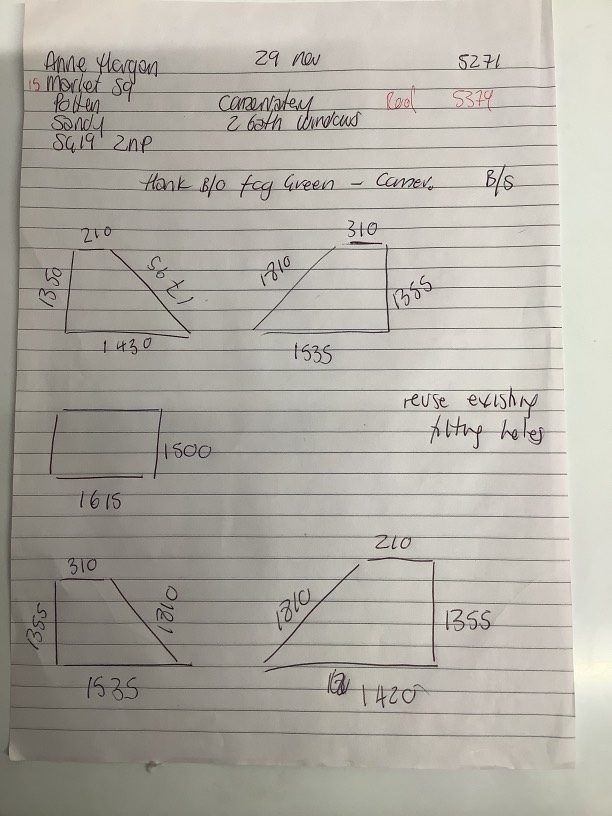 Anne Horgan 29 nov 5271
15 Market Sq
Potten Conservatory Red 5379
Sandy 2 both windows
SG19 2NP
Hank B/O fcg Green - Conser. B/S
210 310
1350 1795 1810 1355
1430 1535
reuse existing
fitting holes
1500
1615
310 210
1355 1810 1810 1355
1535 1420